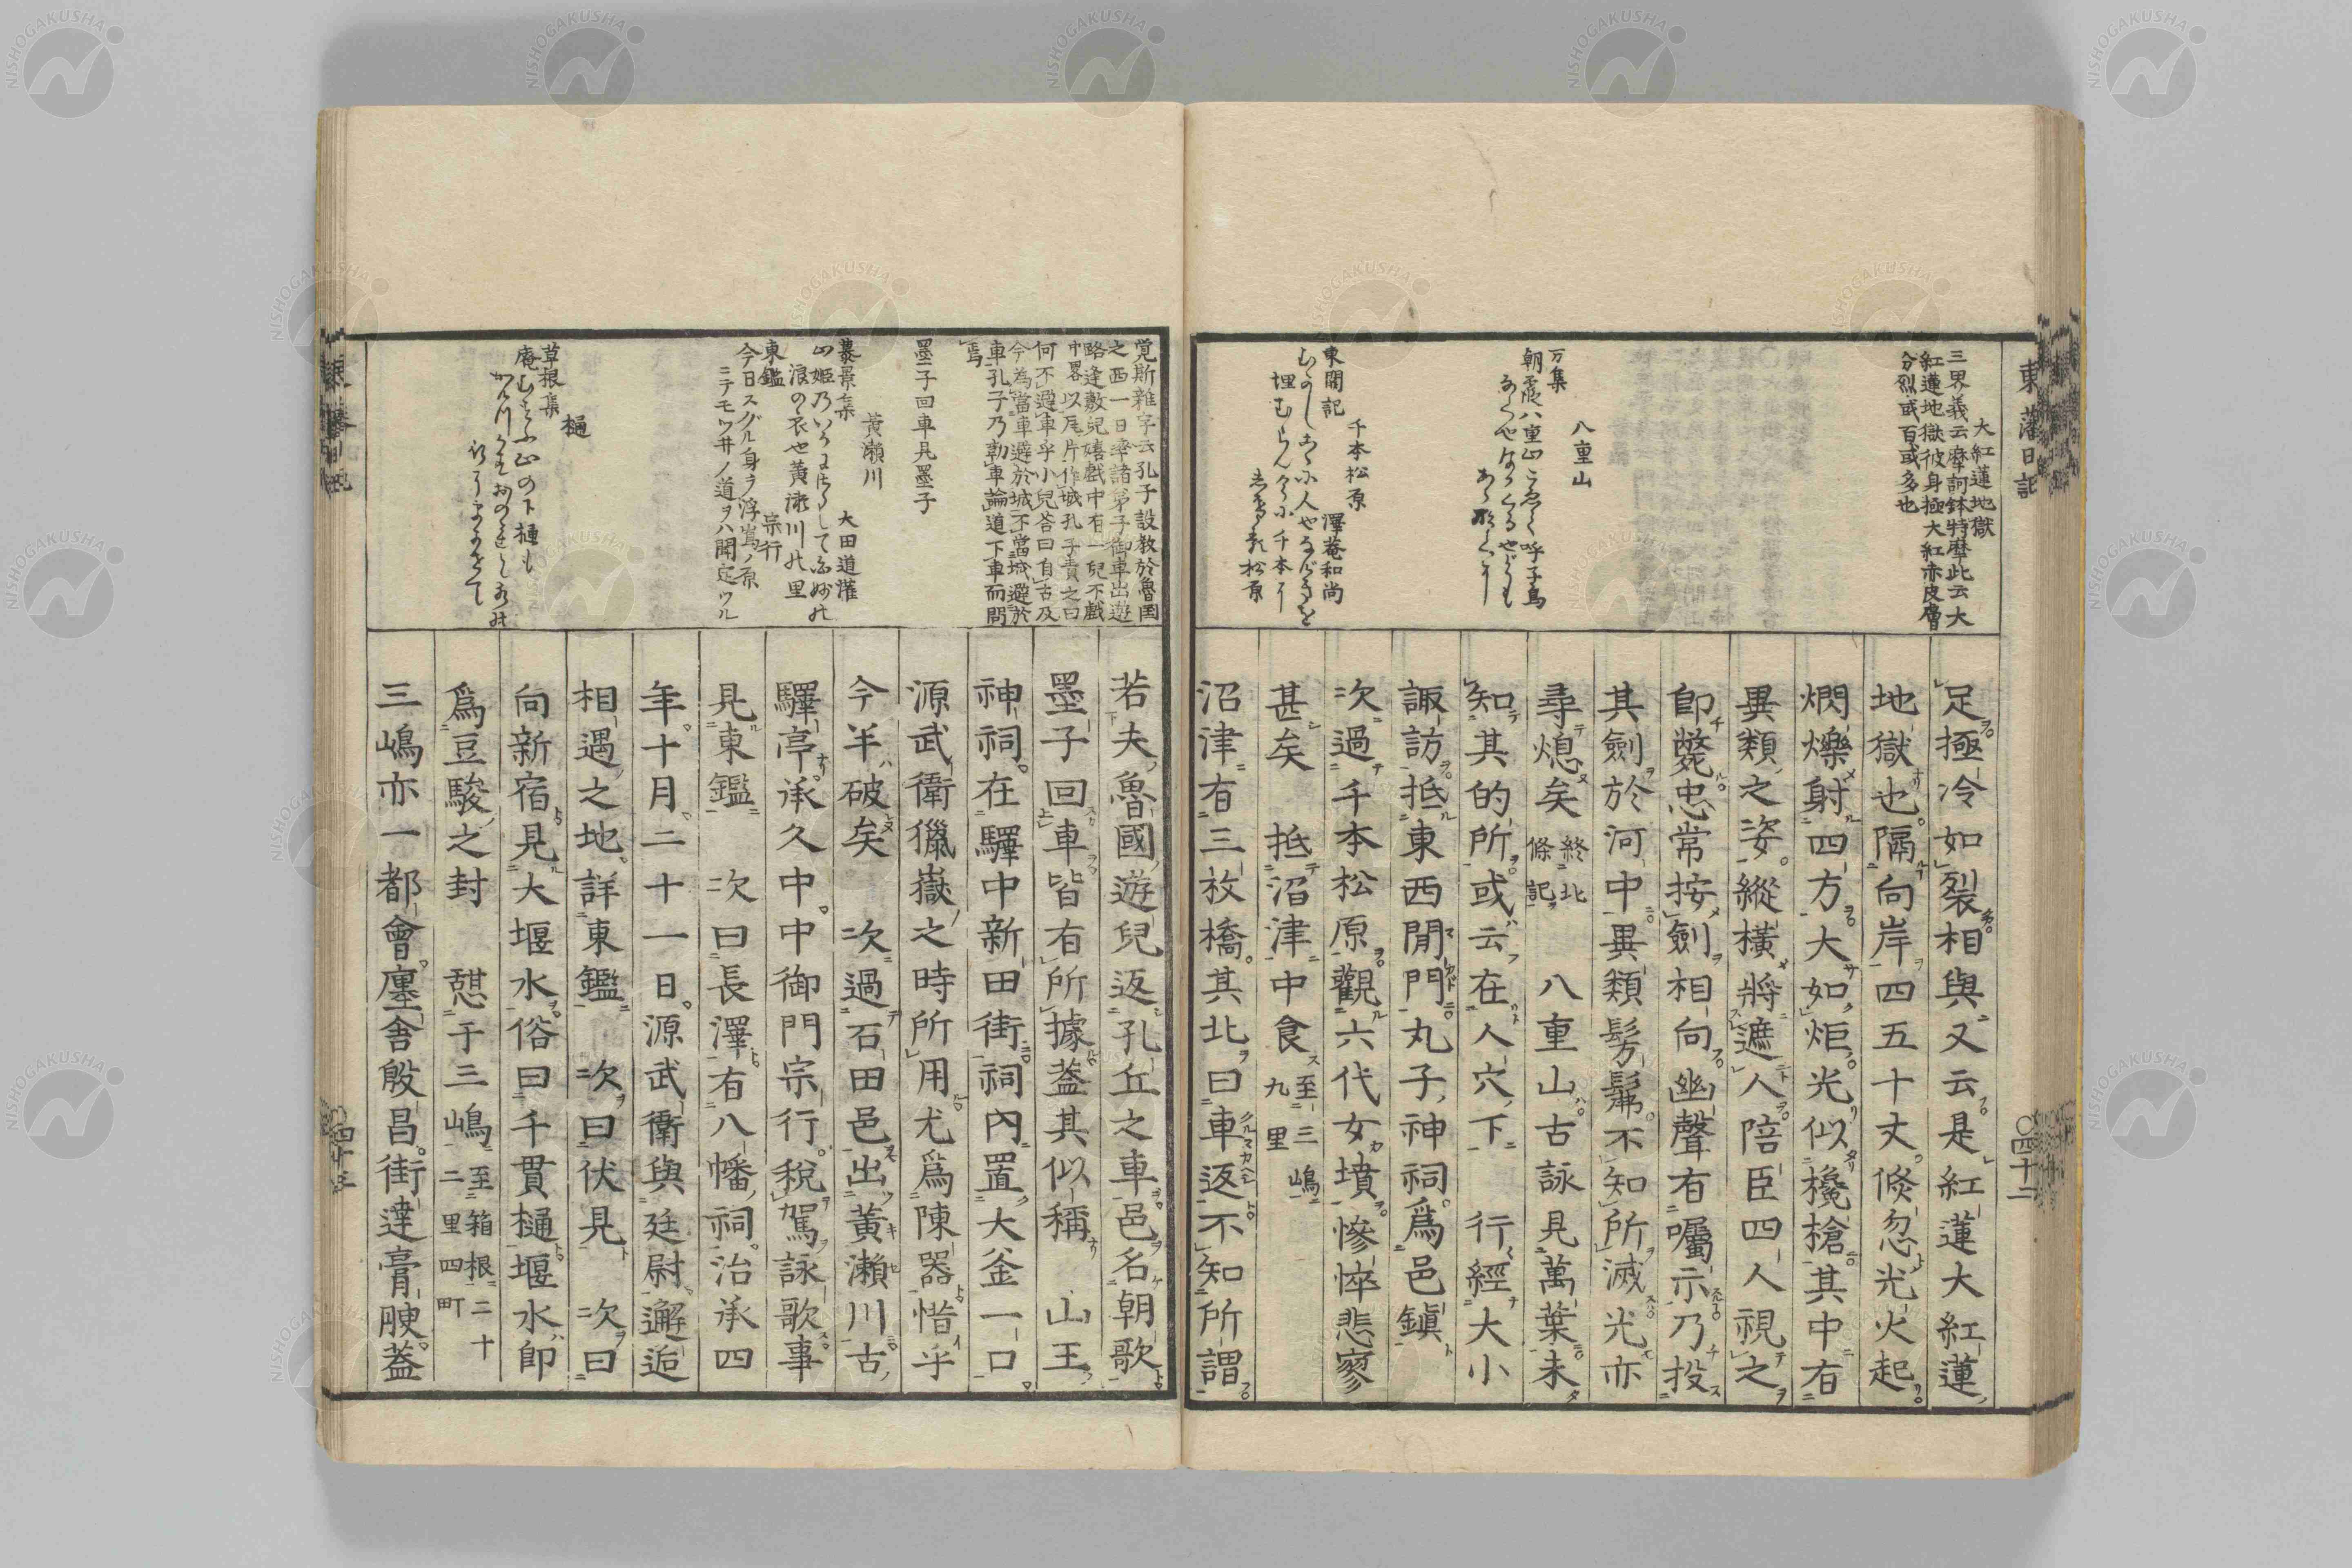 東藩日記
○四十二
大紅蓮地獄
三界義云摩訶鉢特摩此云大
紅蓮地獄彼身極大紅赤皮膚
分烈或百或多也
八重山
万集
朝霞八重山こえて呼子鳥
千本松原
東關記 澤菴和尚
足極冷如裂相與又云是紅蓮大紅蓮
地獄也隔向岸四五十丈倐忽光火起
燜爍射四方大如炬光似欃槍其中有
異類之姿縱橫將遮人陪臣四人視之
卽斃忠常按劍相向幽聲有囑示乃投
其劍於河中異類髣髴不知所滅光亦
尋熄矣終北條記 八重山古詠見萬葉未
知其的所或云在人穴下 行經大小
諏訪抵東西閒門丸子神祠爲邑鎭
次過千本松原觀六代女墳慘悴悲寥
甚矣 抵沼津中食至三嶋九里
沼津有三枚橋其北曰車返不知所謂
覚斯雜字云孔子設教於魯国
之西一日率諸弟子御車出遊
路逢數兒嬉戲中有一兒不戲
中畧以瓦片作城孔子責之曰
何不避車乎小兒荅曰自古及
今為當車避於城不當城避於
車孔子乃勒車論道下車而問
焉
墨子回車見墨子
黃瀬川
慕景集 大田道灌
東鑑 宗行
今日スグル身ヲ浮嶌ノ原
ニテモツ井ノ道ヲハ聞定ツル
樋
草根集
若夫魯國遊兒返孔丘之車邑名朝歌
墨子回車皆有所據蓋其似稱 山王
神祠在驛中新田街祠內置大釜一口
源武衛獵嶽之時所用尤爲陳器惜乎
今羊破矣 次過石田邑出黃瀬川古
驛亭承久中中御門宗行稅駕詠歌事
見東鑑 次曰長澤有八幡祠治承四
年十月二十一日源武衛與廷尉邂逅
相遇之地詳東鑑 次曰伏見 次曰
向新宿見大堰水俗曰千貫樋堰水卽
爲豆駿之封 憇于三嶋至箱根二十二里四町
三嶋亦一都會廛舍殷昌街達膏腴蓋